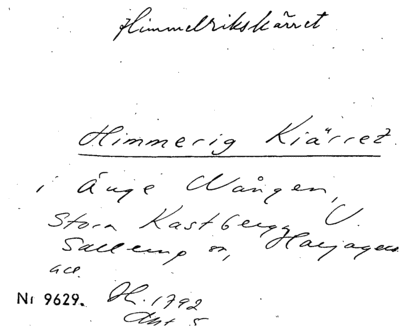 Himmelrikskärret
Himmerig Kiärret
i Änge Wången,
Stora Kastberga U.
Sallerup sn, Harjagers
Nr 9629. Hl. 1792
Akt 5